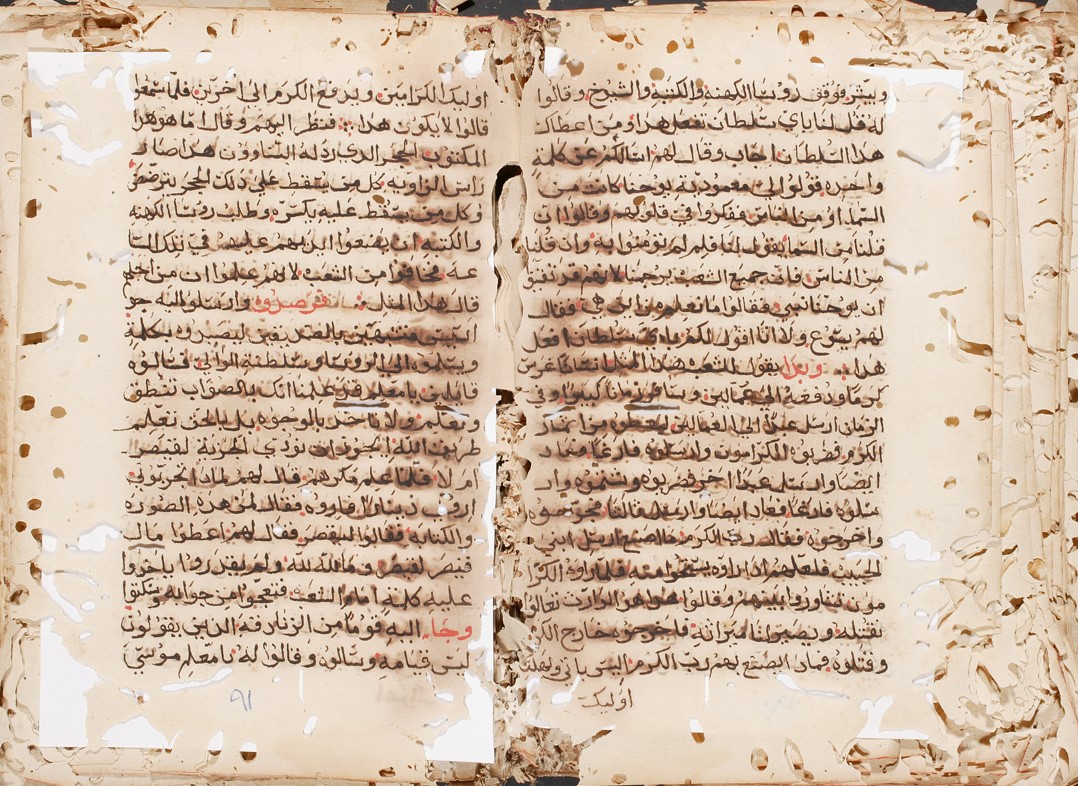 ويبشر فوقف روسا الكهنة والكتبة والشيوخ وقالوا
له قل لنا باي سلطان تفعل هذا ومن اعطاك
هذا السلطان اجاب وقال لهم اسالكم عن كلمة
واحده قولوا لي معمودية يوحنا كانت من
السما او من الناس ففكروا في قلوبهم وقالوا ان
قلنا من السما يقول لنا فلم لم تومنوا به وان قلنا
من الناس فان جميع الشعب يرجمنا لانهم قد تيقنوا
ان يوحنا نبي فقالوا ما نعلم من اين هي فقال
لهم يسوع ولا انا اقول لكم باي سلطان افعل
هذا وبدا يقول للشعب هذا المثل انسانا غرس
كرما ودفعه الي عمالين وسافر زمانا كبيرا وفي
الزمان ارسل عبدا الي العمالين ليعطوه من اثمار
الكرم فضربوه الكرامون وارسلوه فارغا وعاد
ايضا وارسل عبدا اخر فضربوه وشتموه وار
سلوه فارغا فعاد ايضا وارسل ثالثا فجرحوه
واخرجوه فقال رب الكرم ماذا اصنع ارسل ابني
الحبيب فلعلهم اذا راوه يستحوا منه فلما راوه الكرا
مون تشاوروا بينهم وقالوا هذا هو الوارث تعالوا
نقتله ويصير لنا ميراثه فاخرجوه خارج الكرم
وقتلوه فماذا يصنع بهم رب الكرم اليس ياتي ويهلك
اوليك
اوليك الكرامين ويدفع الكرم الي اخرين فلما سمعوا
قالوا لا يكون هذا فنظر اليهم وقال ما هو هذا
المكتوب الحجر الذي رذله البناوون هذا صار
راس الزاويه كل من يسقط علي ذلك الحجر يترضض
وكل من يسقط عليه يكسره وطلب روسا الكهنة
والكتبه ان يضعوا ايديهم عليه في تلك السا
عه فخافوا من الشعب لانهم علموا ان من اجلهم
قال هذا المثل فرصدوه وارسلوا اليه جوا
سيس متشبهين بالصديقين ليصيدوه بكلمة
ويسلموه الي الروسا وسلطنة الوالي فسالوه
قايلين يا معلم قد علمنا انك بالصواب تنطق
وتعلم ولا تاخذ بالوجوه بل بالحق تعلم
طريق الله ايجوز ان نودي الجزية لقيصر
ام لا فلما علم مكرهم قال لهم لماذا تجربوني
اروني دينارا فاروه فقال لمن هذه الصورة
والكتابه فقالوا لقيصر فقال لهم اعطوا مال
قيصر لقيصر وما لله لله ولم يقدروا ياخذوا
عليه كلمة امام الشعب فتعجبوا من جوابه وسكتوا
وجا اليه قوما من الزنادقه الذين يقولون
ليس قيامه وسالوه وقالوا له يا معلم موسي
91